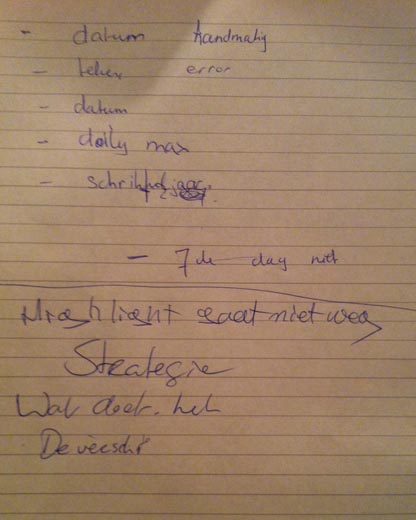 - datum handmatig
- teller error
- datum
- daily max
- schrikkeljaar.
- 7de dag niet
Highlight gaat niet weg
Strategie
Wat doet het
De